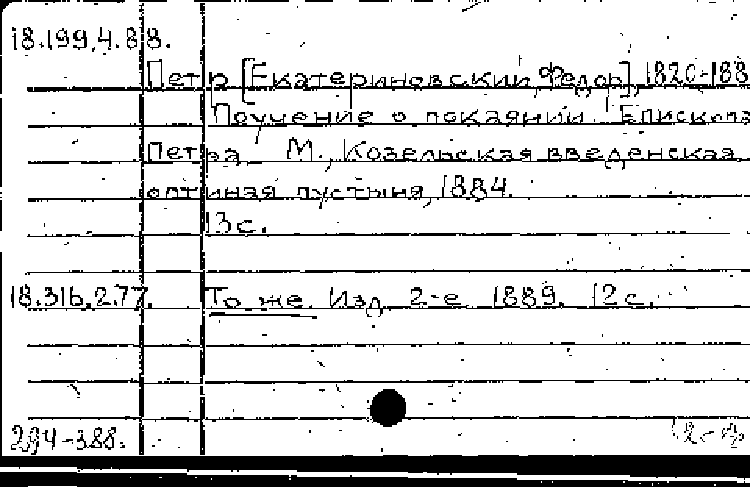 18.199.4.88.
Петр [Екатериновский, Федор], 1820-188
Поучение о покаянии. Епископа
Петра. М., Козельская введенская
оптиная пустынь, 1884.
13 с.
18.316.2.77. То же. Изд. 2-е 1889. 12 с.
294-388.